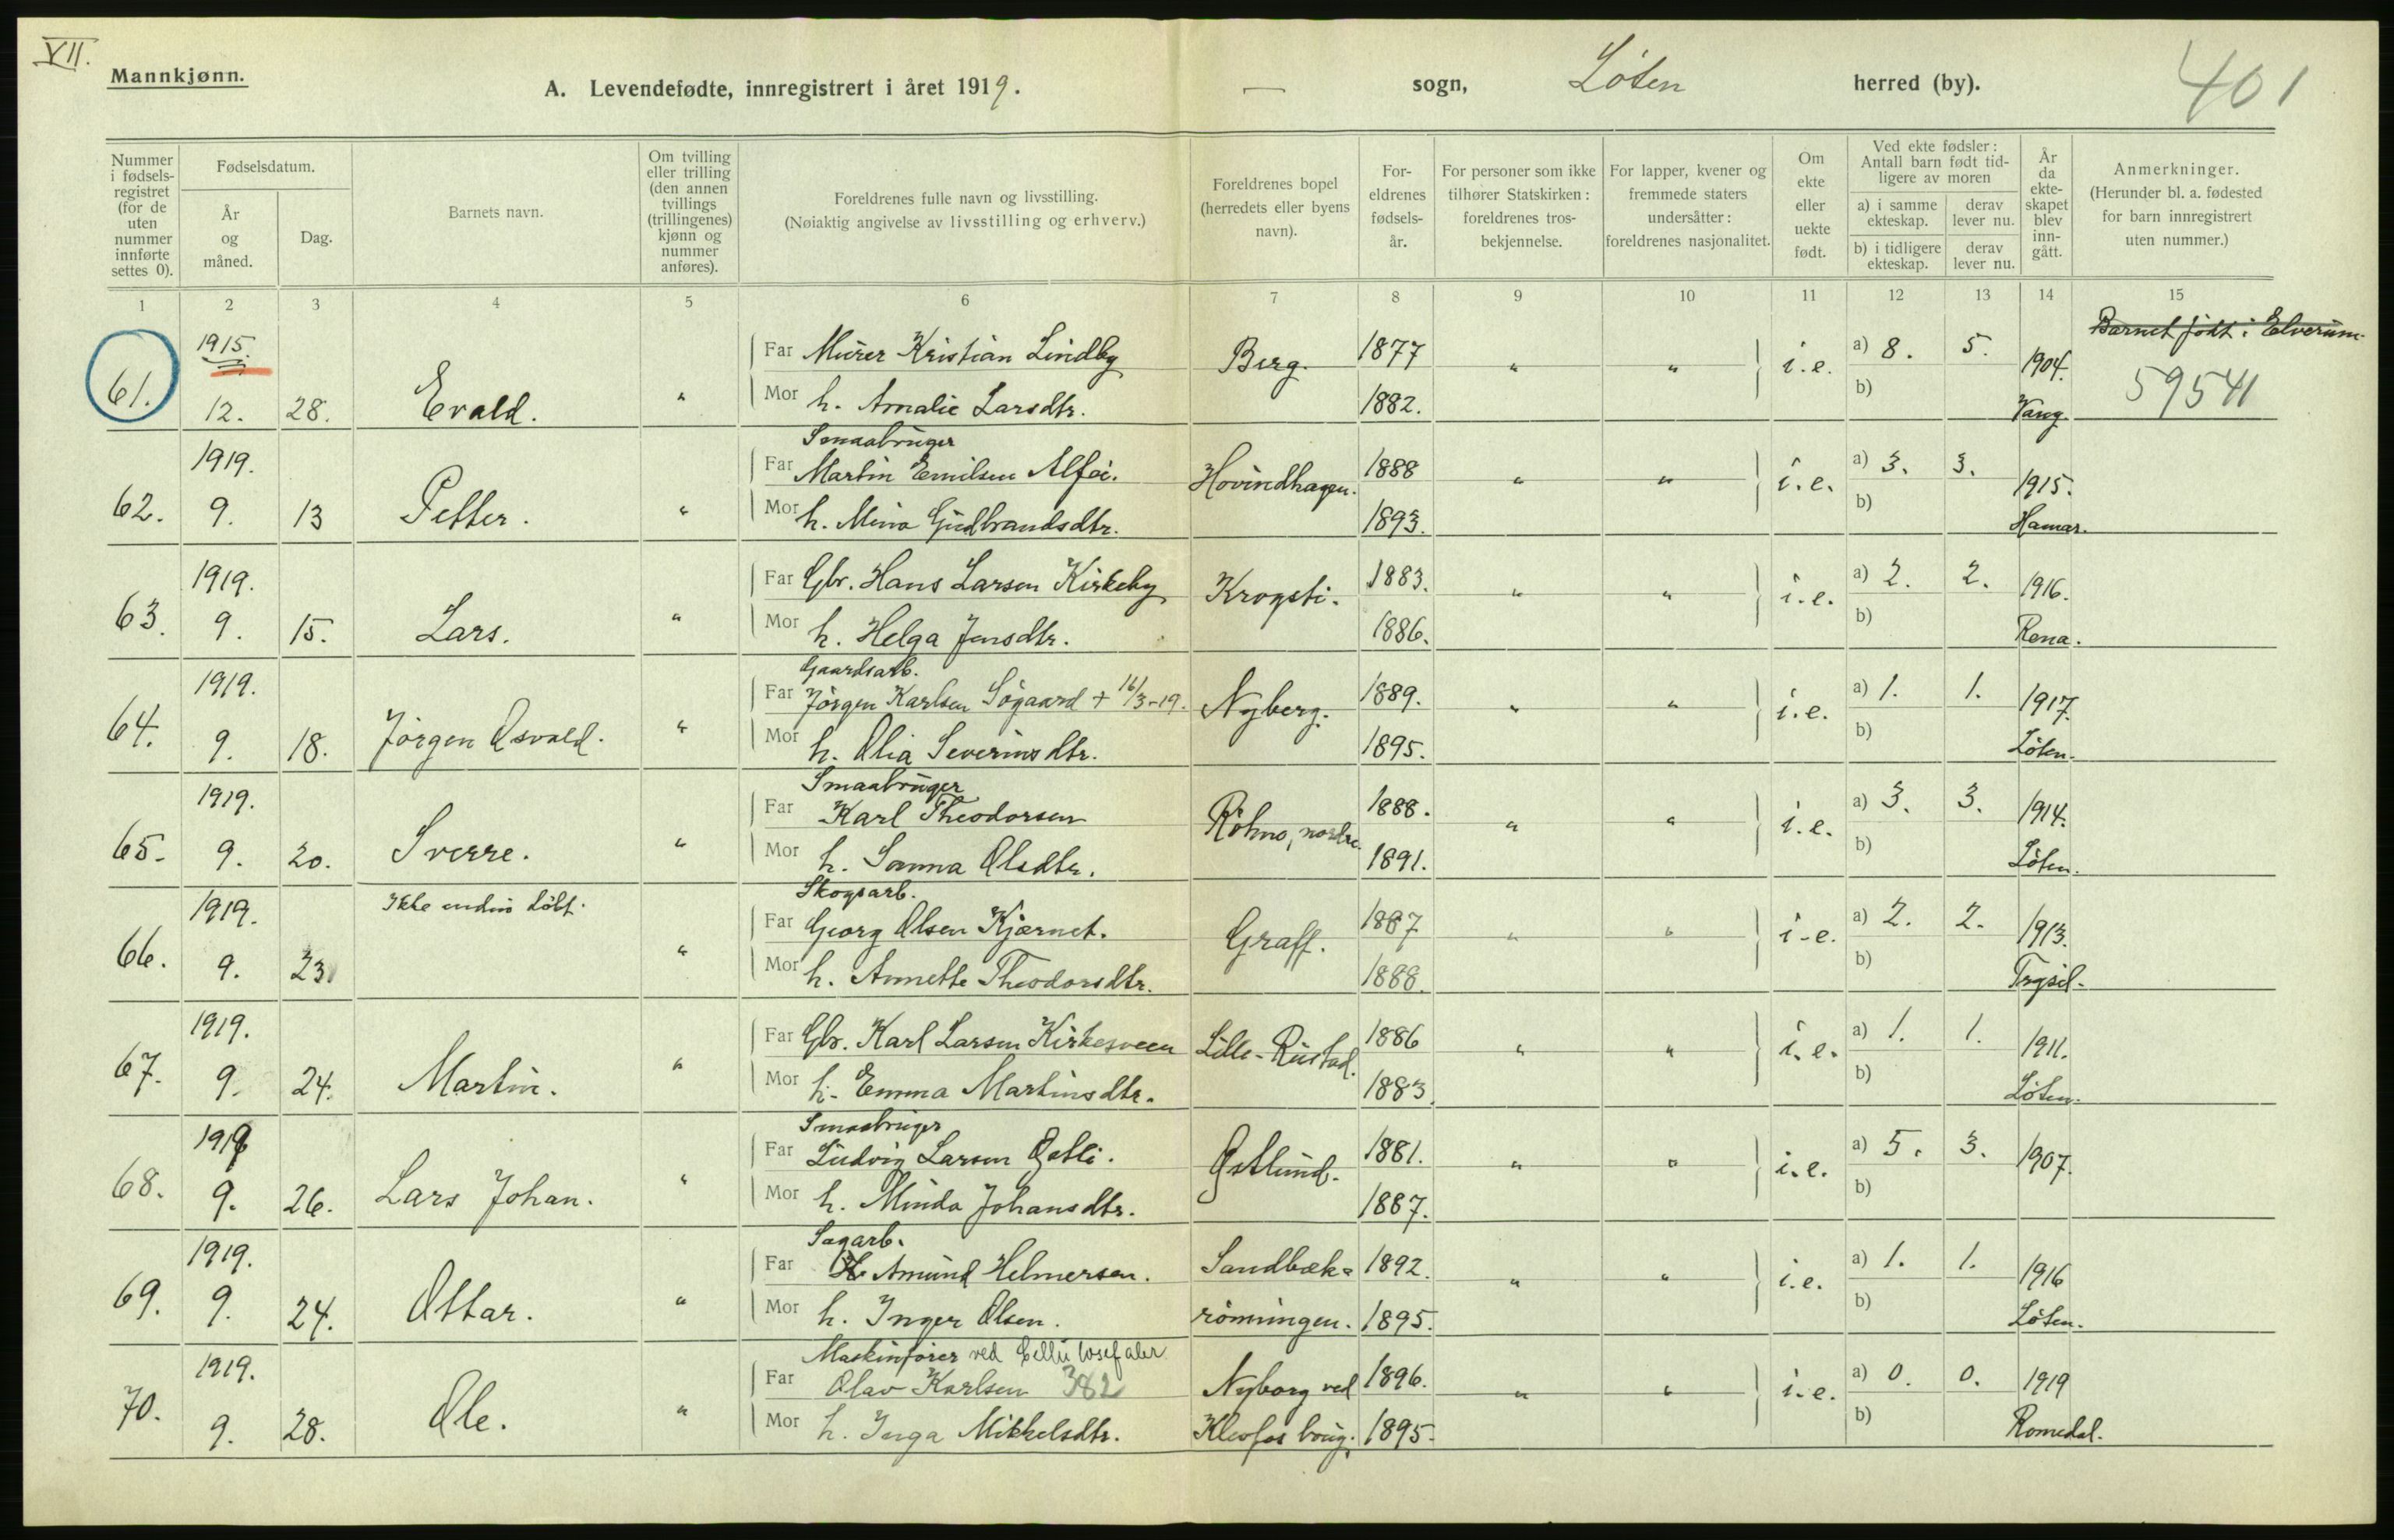 VII.
Mannkjønn.
A. Levendefødte, innregistrert i året 1919.
— sogn, Löten herred (by).
401
Nummer i fødselsregistret (for de uten nummer innførte settes 0).
Fødselsdatum.
År og måned.
Dag.
Barnets navn.
Om tvilling eller trilling (den annen tvillings (trillingenes) kjønn og nummer anføres).
Foreldrenes fulle navn og livsstilling.
(Nøiaktig angivelse av livsstilling og erhverv.)
Foreldrenes bopel (herredets eller byens navn).
Foreldrenes fødselsår.
For personer som ikke tilhører Statskirken: foreldrenes trosbekjennelse.
For lapper, kvener og fremmede staters undersåtter: foreldrenes nasjonalitet.
Om ekte eller uekte født.
Ved ekte fødsler: Antall barn født tidligere av moren
a) i samme ekteskap.
derav lever nu.
b) i tidligere ekteskap.
derav lever nu.
År da ekteskapet blev inngått.
Anmerkninger.
(Herunder bl. a. fødested for barn innregistrert uten nummer.)
1 2 3 4 5 6 7 8 9 10 11 12 13 14 15
1915. Far Murer Kristian Lindby Berg. 1877 " " i.e. a) 8. 5. 1904. Barnet født i Elverum.
61. 12. 28. Evald. " Mor h. Amalie Larsdtr. 1882. b) Vang. 59541
Smaabruger
1919. Far Martin Emilsen Alfei. Hovindhagen. 1888 " " i.e. a) 3. 3. 1915.
62. 9. 13 Petter. " Mor h. Mina Gudbrandsdtr. 1893. b) Hamar.
1919. Far Gbr. Hans Larsen Kirkeby Krogsti. 1883. " " i.e. a) 2. 2. 1916.
63. 9. 15. Lars. " Mor h. Helga Jensdtr. 1886. b) Rena.
Gaardsarb.
1919. Far Jörgen Karlsen Sögaard + 16/3-19. Nyberg. 1889. " " i.e. a) 1. 1. 1917.
64. 9. 18. Jörgen Osvald. " Mor h. Olia Severinsdtr. 1895. b) Löten.
Smaabruger
1919. Far Karl Theodorsen Röhno, nordre. 1888. " " i.e. a) 3. 3. 1914.
65. 9. 20. Sverre. " Mor h. Sanna Olsdtr. 1891. b) Löten.
Skogsarb.
1919. Ikke endnu döbt. Far Georg Olsen Kjærnet. Graff. 1887 " " i-e. a) 2. 2. 1913.
66. 9. 23 " Mor h. Annette Theodorsdtr. 1888. b) Trysil.
1919. Far Gbr. Karl Larsen Kirkesveen Lille-Rustad. 1886 " " i.e. a) 1. 1. 1911.
67. 9. 24. Martin. " Mor h. Emma Martinsdtr. 1883. b) Löten.
Smaabruger
1919 Far Ludvig Larsen Östli. Östlund. 1881. " " i.e. a) 5. 3. 1907.
68. 9. 26. Lars Johan. " Mor h. Minda Johansdtr. 1887. b)
Sagarb.
1919. Far Amund Helmersen. Sandbæk= 1892. " " i.e. a) 1. 1. 1916
69. 9. 24. Ottar. " Mor h. Inger Olsen. römningen. 1895. b) Löten.
Maskinförer ved Cellulosefabr.
1919. Far Olav Karlsen 382 Nyborg ved 1896. " " i.e. a) 0. 0. 1919
70. 9. 28. Ole. " Mor h. Inga Mikkelsdtr. Klevfos brug. 1895. b) Romedal.